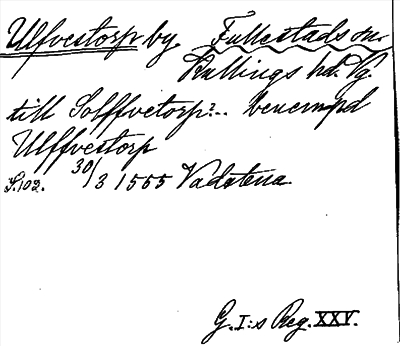 Ulfvestorp by, Fullestads sn.
Kullings hd. Vg.
till Solffvetorp?.. benempd
Ulffvestorp
S. 102. 30/3 1555 Vadstena.
G. I:s Reg. XXV.